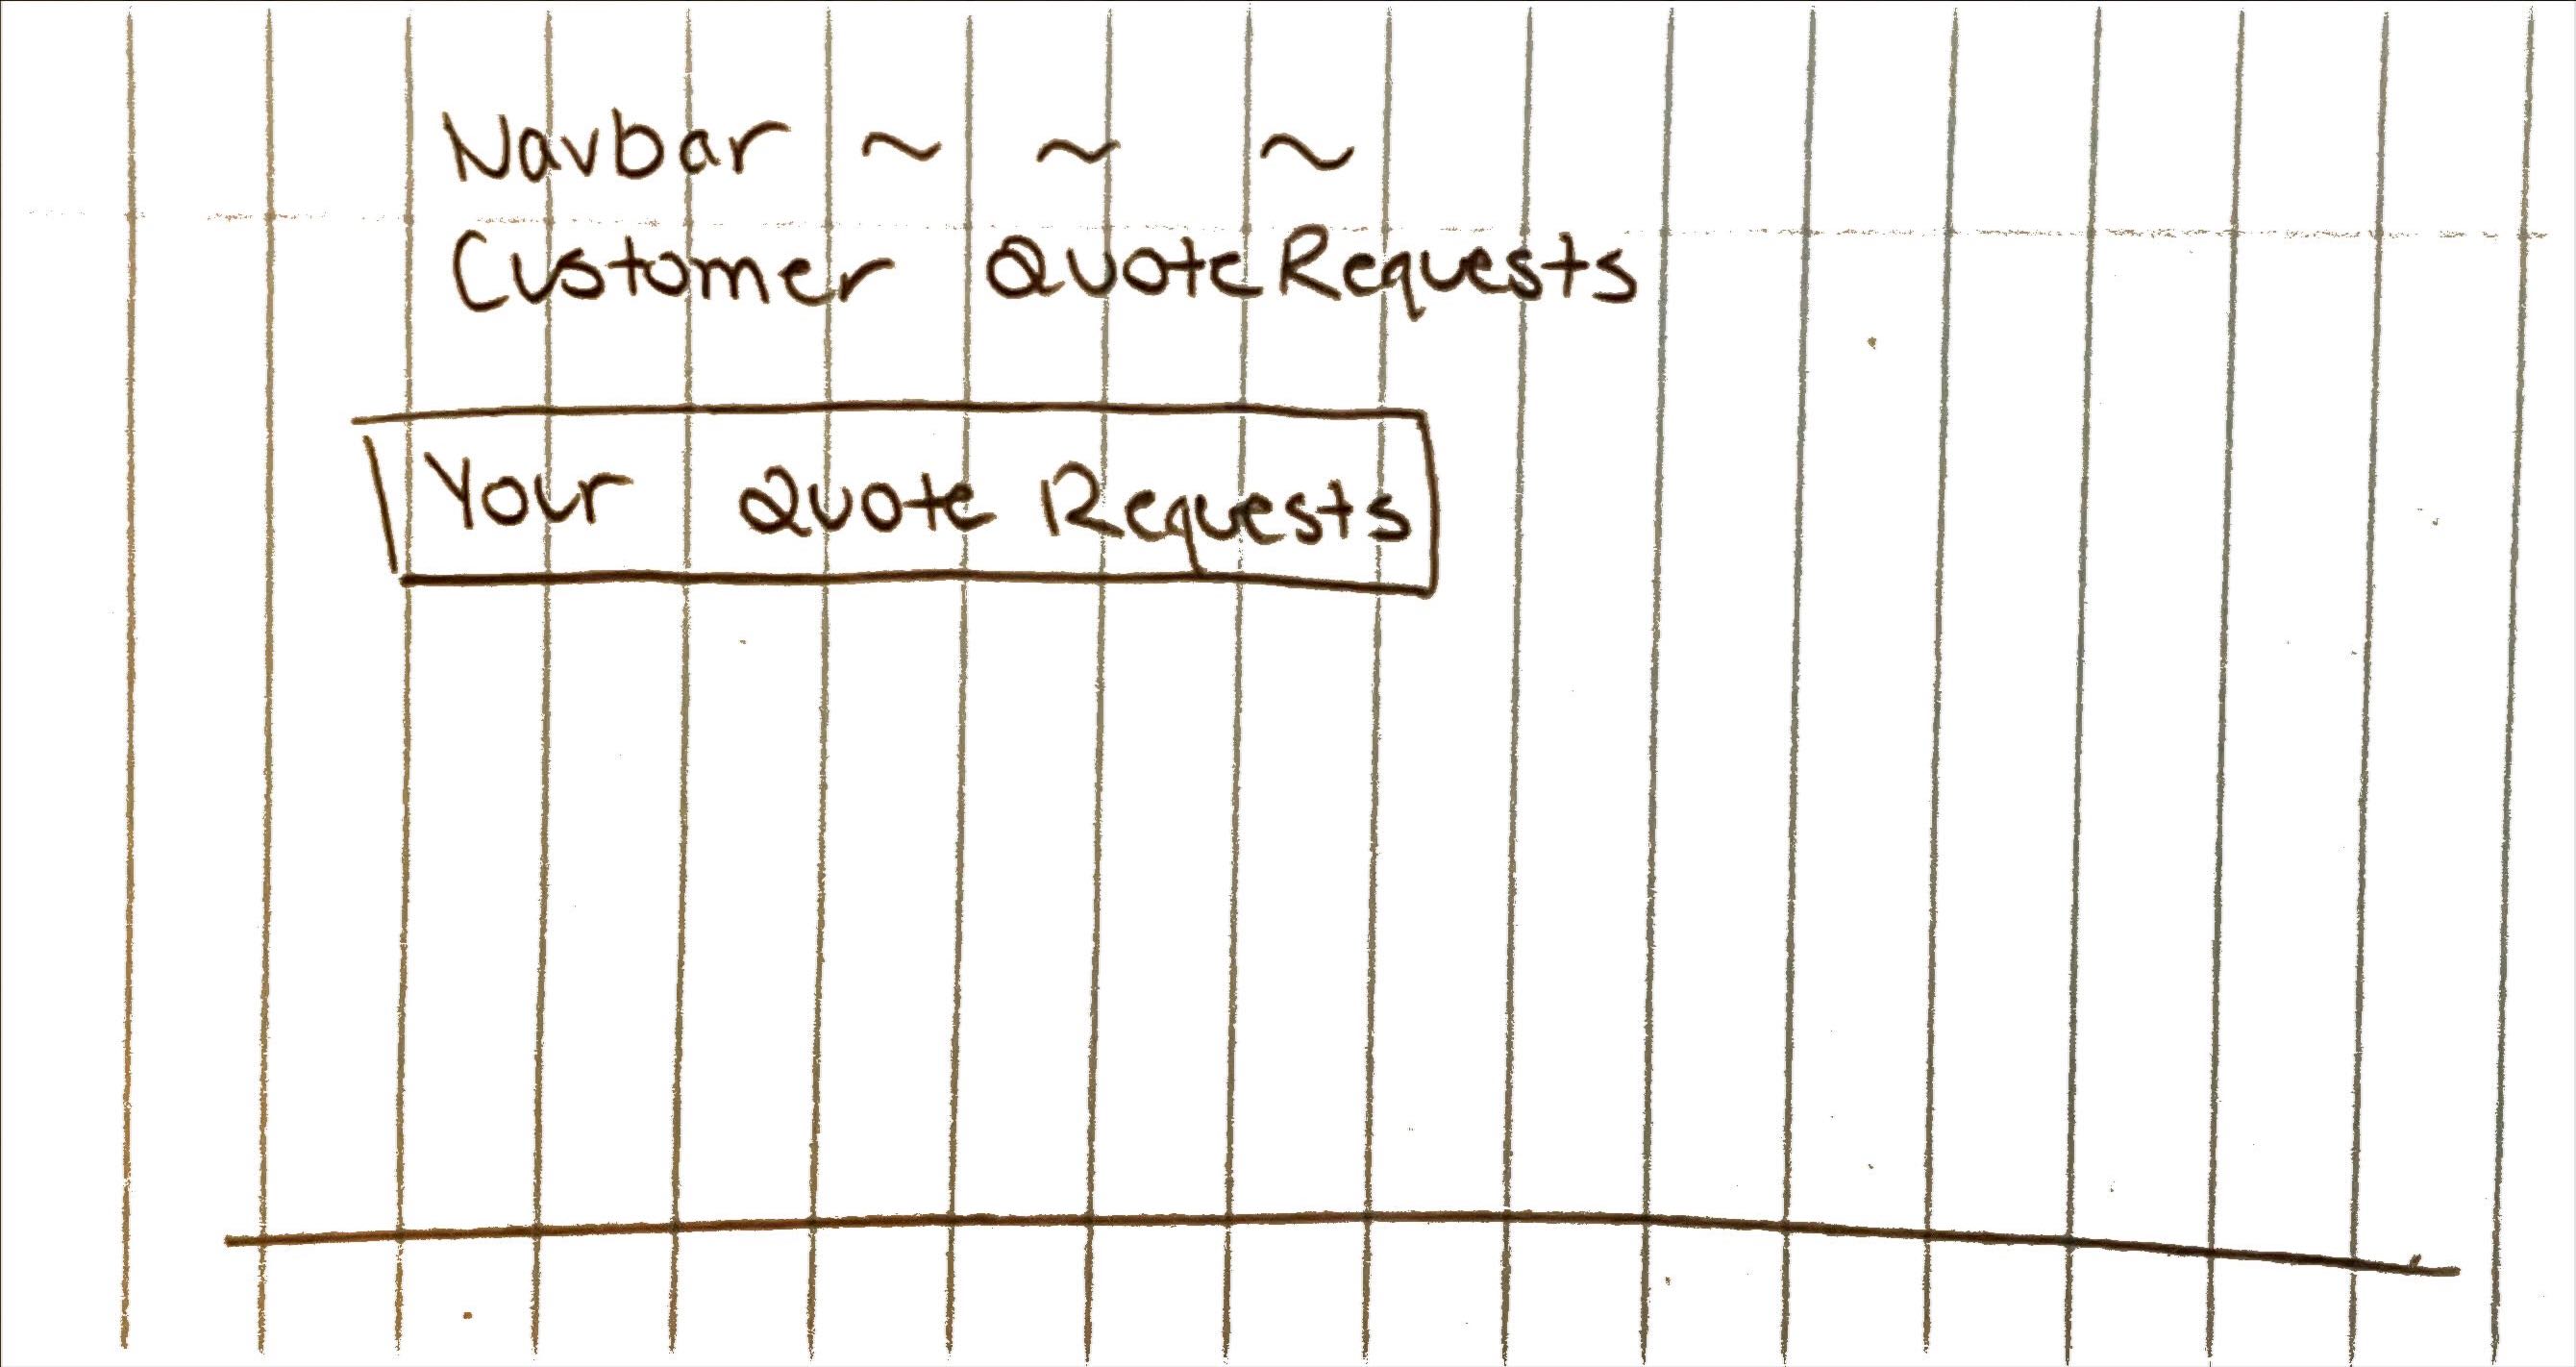 Navbar ~ ~ ~
Customer Quote Requests
Your Quote Requests